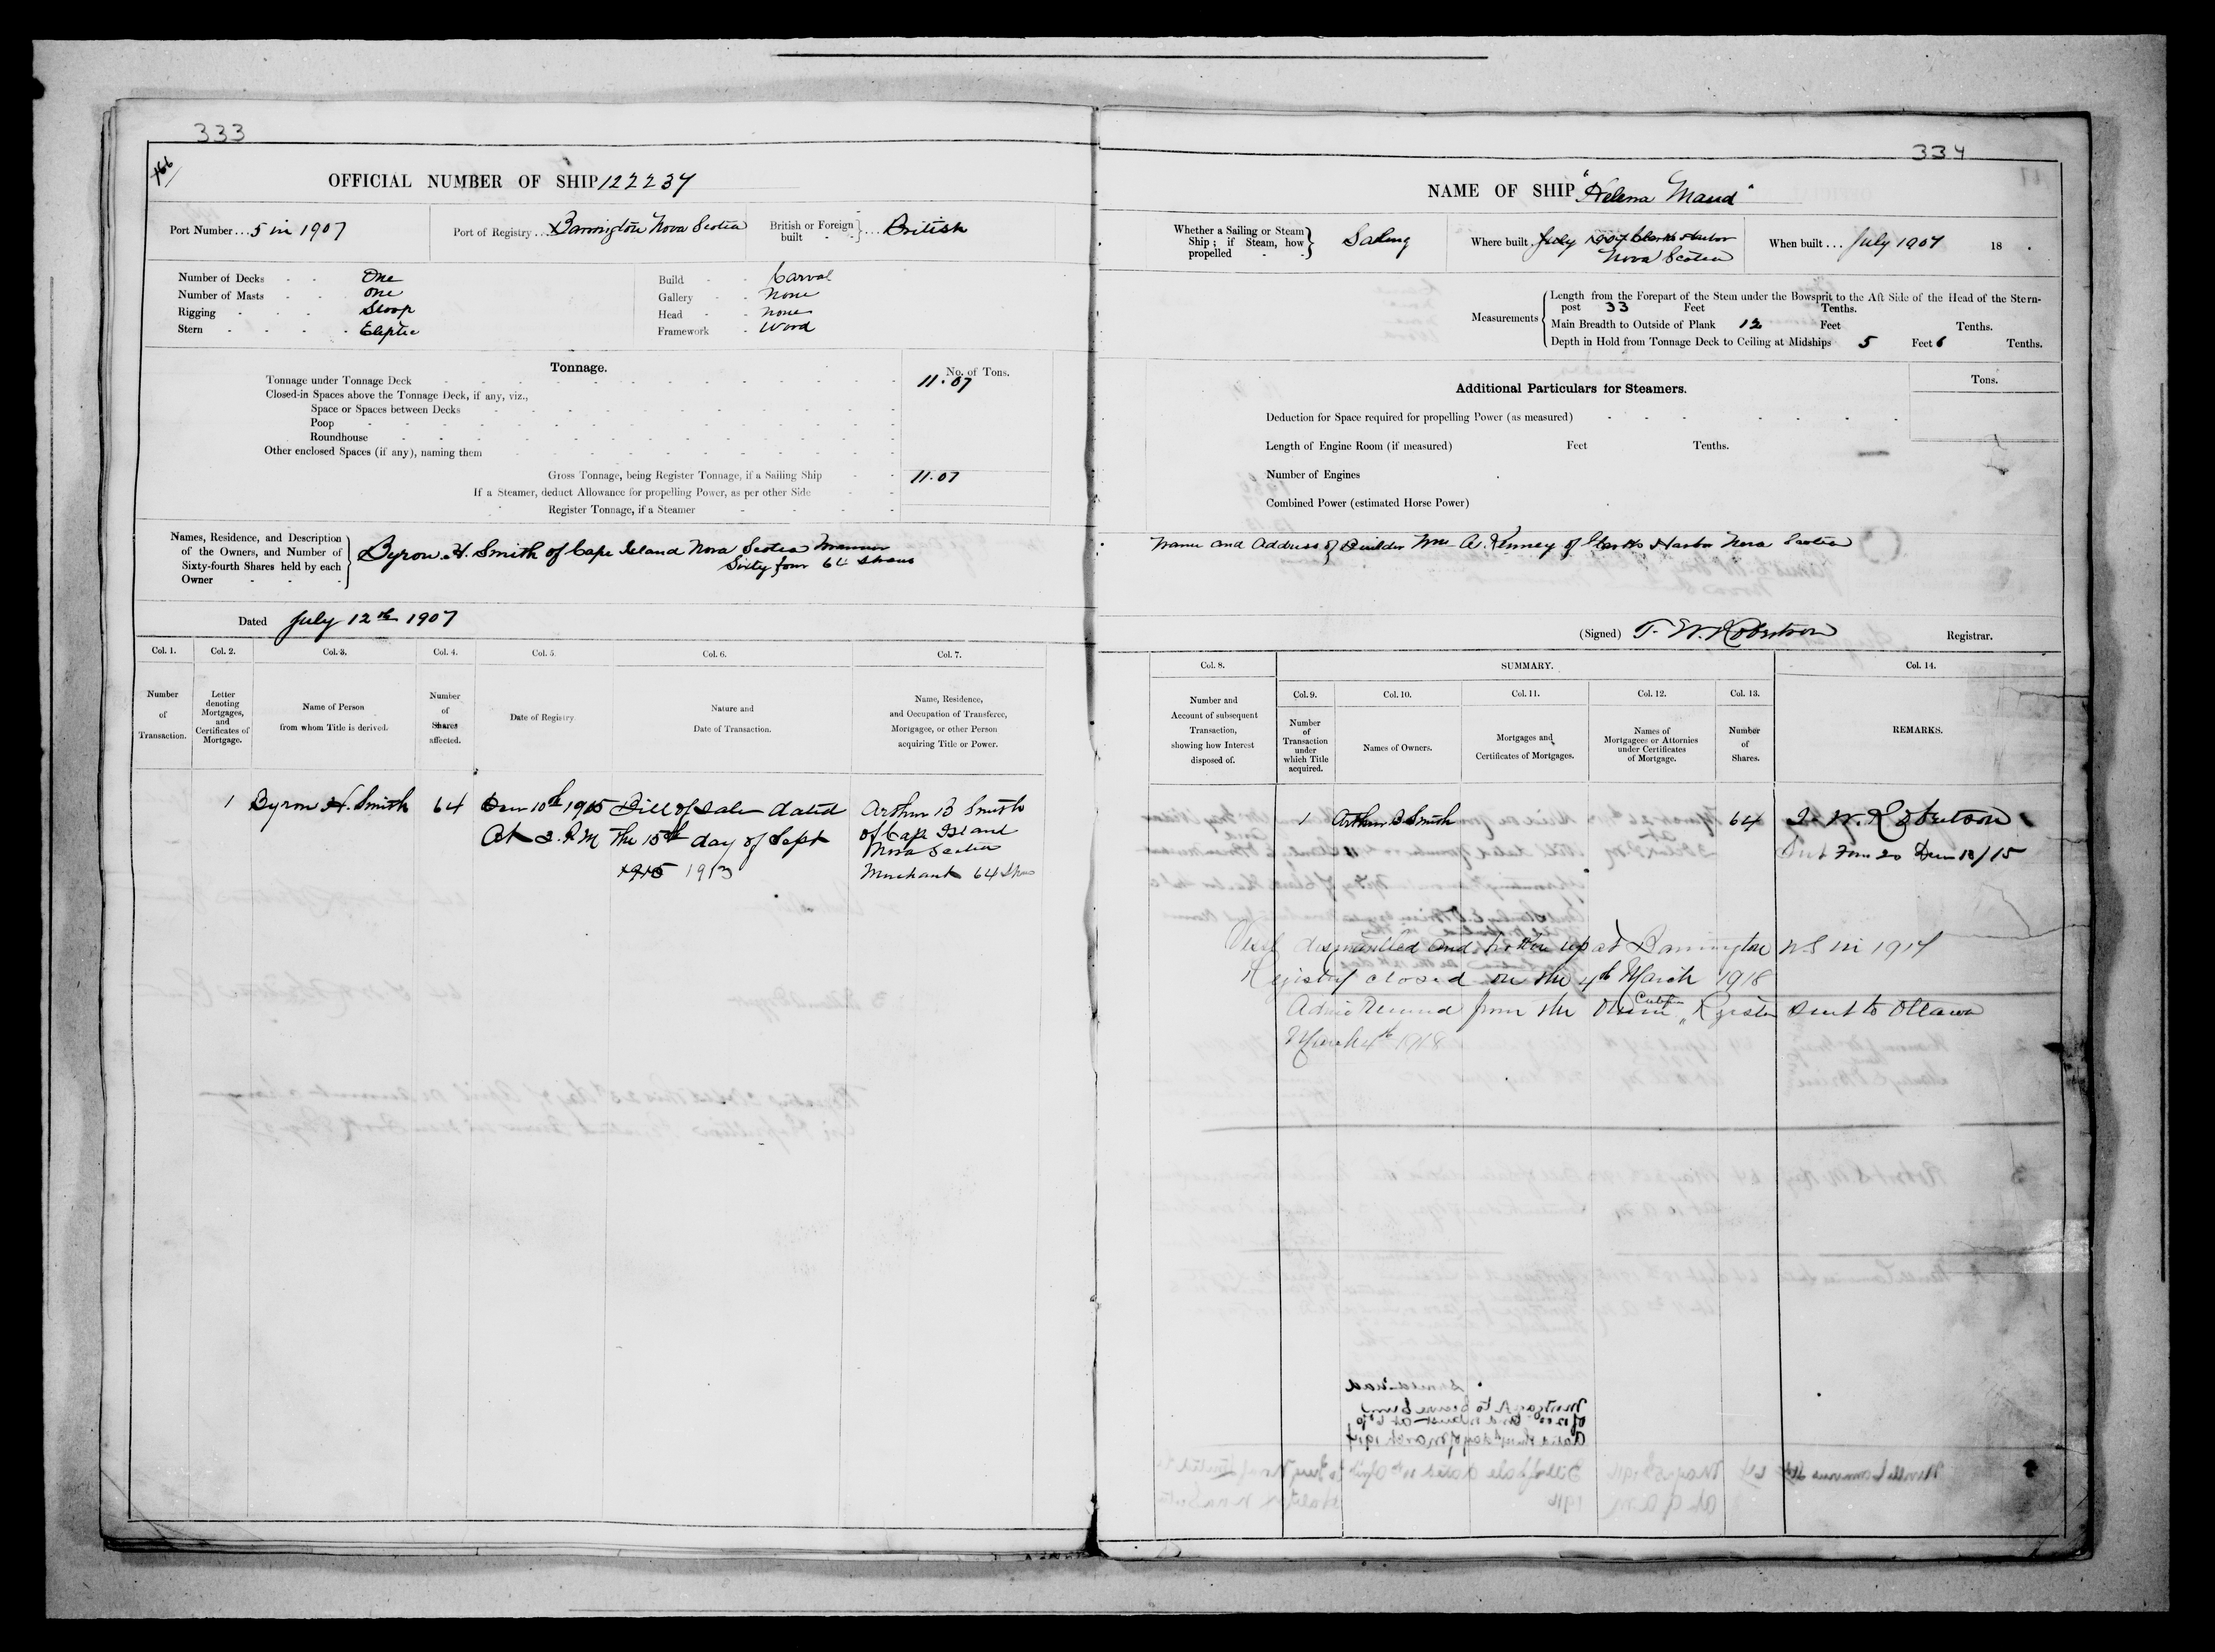 333
166
OFFICIAL NUMBER OF SHIP 122237
Port Number... 5 in 1907
Port of Registry... Barrington Nova Scotia
British or Foreign built - - }... British
Number of Decks - - One
Number of Masts - - One
Rigging - - - Sloop
Stern - - - - Eliptic
Build - - Carval
Gallery - - None
Head - - none
Framework - Wood
Tonnage.
No. of Tons.
Tonnage under Tonnage Deck 11.07
Closed-in Spaces above the Tonnage Deck, if any, viz.,
Space or Spaces between Decks
Poop
Roundhouse
Other enclosed Spaces (if any), naming them
Gross Tonnage, being Register Tonnage, if a Sailing Ship 11.07
If a Steamer, deduct Allowance for propelling Power, as per other Side
Register Tonnage, if a Steamer
Names, Residence, and Description
of the Owners, and Number of
Sixty-fourth Shares held by each
Owner
Byron H. Smith of Cape Island Nova Scotia
Sixty four 64 Shares
Dated July 12th 1907
Col. 1.
Number
of
Transaction.
Col. 2.
Letter
denoting
Mortgages,
and
Certificates of
Mortgage.
Col. 3.
Name of Person
from whom Title is derived.
Col. 4.
Number
of
Shares
affected.
Col. 5.
Date of Registry
Col. 6.
Nature and
Date of Transaction.
Col. 7.
Name, Residence,
and Occupation of Transferee,
Mortgagee, or other Person
acquiring Title or Power.
1
Byron H. Smith
64
10th 1915
At 2. P.M
Bill of Sale dated
The 15th day of Sept
1915 1913
Arthur B Smith
of Cape Island
Nova Scotia
Merchant 64
334
NAME OF SHIP "Helena Maud"
Whether a Sailing or Steam
Ship; if Steam, how
propelled - - } Sailing
Where built. July 1907 Clarks Harbor
Nova Scotia
When built... July 1907 18 .
Measurements
Length from the Forepart of the Stem under the Bowsprit to the Aft Side of the Head of the Stern-
post 33 Feet Tenths.
Main Breadth to Outside of Plank 12 Feet Tenths.
Depth in Hold from Tonnage Deck to Ceiling at Midships 5 Feet 6 Tenths.
Additional Particulars for Steamers.
Tons.
Deduction for Space required for propelling Power (as measured)
Length of Engine Room (if measured) Feet Tenths.
Number of Engines
Combined Power (estimated Horse Power)
Name and Address of Builder Wm A. Kenney of Clarks Harbor Nova Scotia
(Signed) T. W. Robertson Registrar.
Col. 8.
Number and
Account of subsequent
Transaction,
showing how Interest
disposed of.
SUMMARY.
Col. 9.
Number
of
Transaction
under
which Title
acquired.
Col. 10.
Names of Owners.
Col. 11.
Mortgages and
Certificates of Mortgages.
Col. 12.
Names of
Mortgagees or Attornies
under Certificates
of Mortgage.
Col. 13.
Number
of
Shares.
Col. 14.
REMARKS.
1
Arthur B Smith
64
T. W. Robertson
Sent Form 20
Vessel dismantled and broken up at Barrington N.S in 1917
Registry closed on the 4th March 1918
from the Owner Certificate Register sent to Ottawa
March 4th 1918